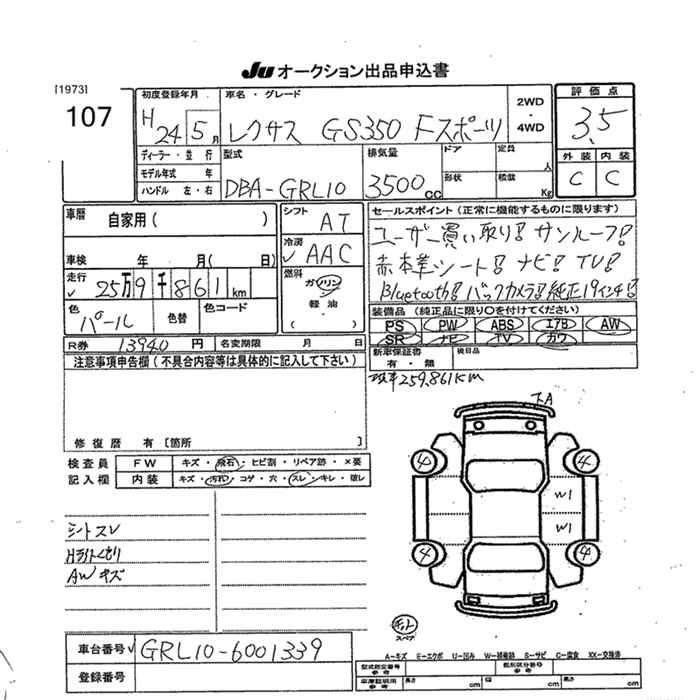 JU オークション出品申込書
[1973]
107
初度登録年月 車名・グレード 2WD・4WD 評価点
H 24 5月 レクサス GS350 Fスポーツ 3.5
ディーラー・並行 型式 排気量 ドア 定員 人 外装 内装
モデル年式 年 形状 積載 Kg
ハンドル 左・右 DBA-GRL10 3500cc C C
車暦 自家用( ) シフト AT セールスポイント(正常に機能するものに限ります)
冷房 AAC ユーザー買い取り! サンルーフ!
車検 年 月( 日) 赤本革シート! ナビ! TV!
走行 25万9千861km 燃料 ガソリン 軽油・( ) Bluetooth! バックカメラ! 純正19インチ!
色 パール 色替 色コード 装備品(純正品に限り○を付けてください)
PS PW ABS エアB AW
SR ナビ TV カワ
R券 13940円 名変期限 月 日 新車保証書 有・無 後日品
注意事項申告欄(不具合内容等は具体的に記入して下さい)
259,861km
修復歴 有[箇所 ]
下A
検査員記入欄 FW キズ・飛石・ヒビ割・リペア跡・×要
内装 キズ・汚れ・コゲ・穴・スレ・キレ・破レ
4 4
W1
W1
4 4
シートスレ
Hライトくもり
AWキズ
スペア
車台番号 GRL10-6001339
A-キズ E-エクボ U-凹み W-補修跡 S-サビ C-腐食 XX-交換済
登録番号
型式指定番号 参考 類別区分番号 参考
車庫証明用 参考 長さ cm 幅 cm 高さ cm